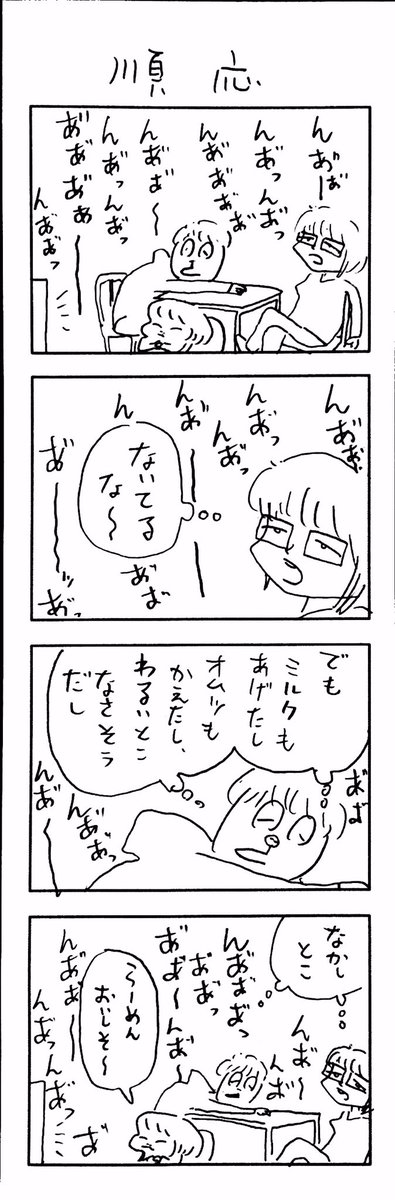 順応
んあ゛あ゛ー
んあ゛っんあ゛っ
んあ゛あ゛あ゛あ゛
んあ゛あ゛〜
んあ゛っんあ゛っ
あ゛あ゛あ゛あ゛ー
んあ゛あ゛っ
んあ゛あ゛
んあ゛っ
んあ゛っ
んあ゛ー
ん
ないてる
な〜
あ゛ーーッ
あ゛あ゛
あ゛っ
でも
ミルクも
あげたし
オムツも
かえたし、
わるいとこ
なさそう
だし
あ゛あ゛
んあ゛ー
んあ゛あ゛っ
なかし
とこ
んあ゛〜
んあ゛
んあ゛あ゛あ゛っ
あ゛あ゛っ
あ゛あ゛〜んあ゛〜
らーめん
おじそ〜
んあ゛あ゛〜
んあ゛っんあ゛っ
あ゛